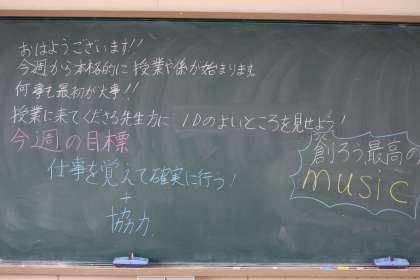 おはようございます!!
今週から本格的に授業や係が始まります
何事も最初が大事!!
授業に来てくださる先生方に 1Dのよいところを見せよう!
今週の目標
仕事を覚えて確実に行う!
+
協力
創ろう最高の
music